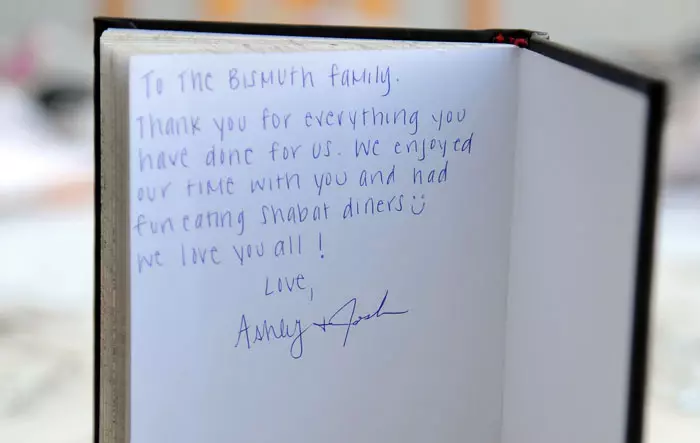 To The Bismuth family.
Thank you for everything you
have done for us. We enjoyed
our time with you and had
fun eating shabat diners☺
We love you all!
Love,
Ashley + Josh